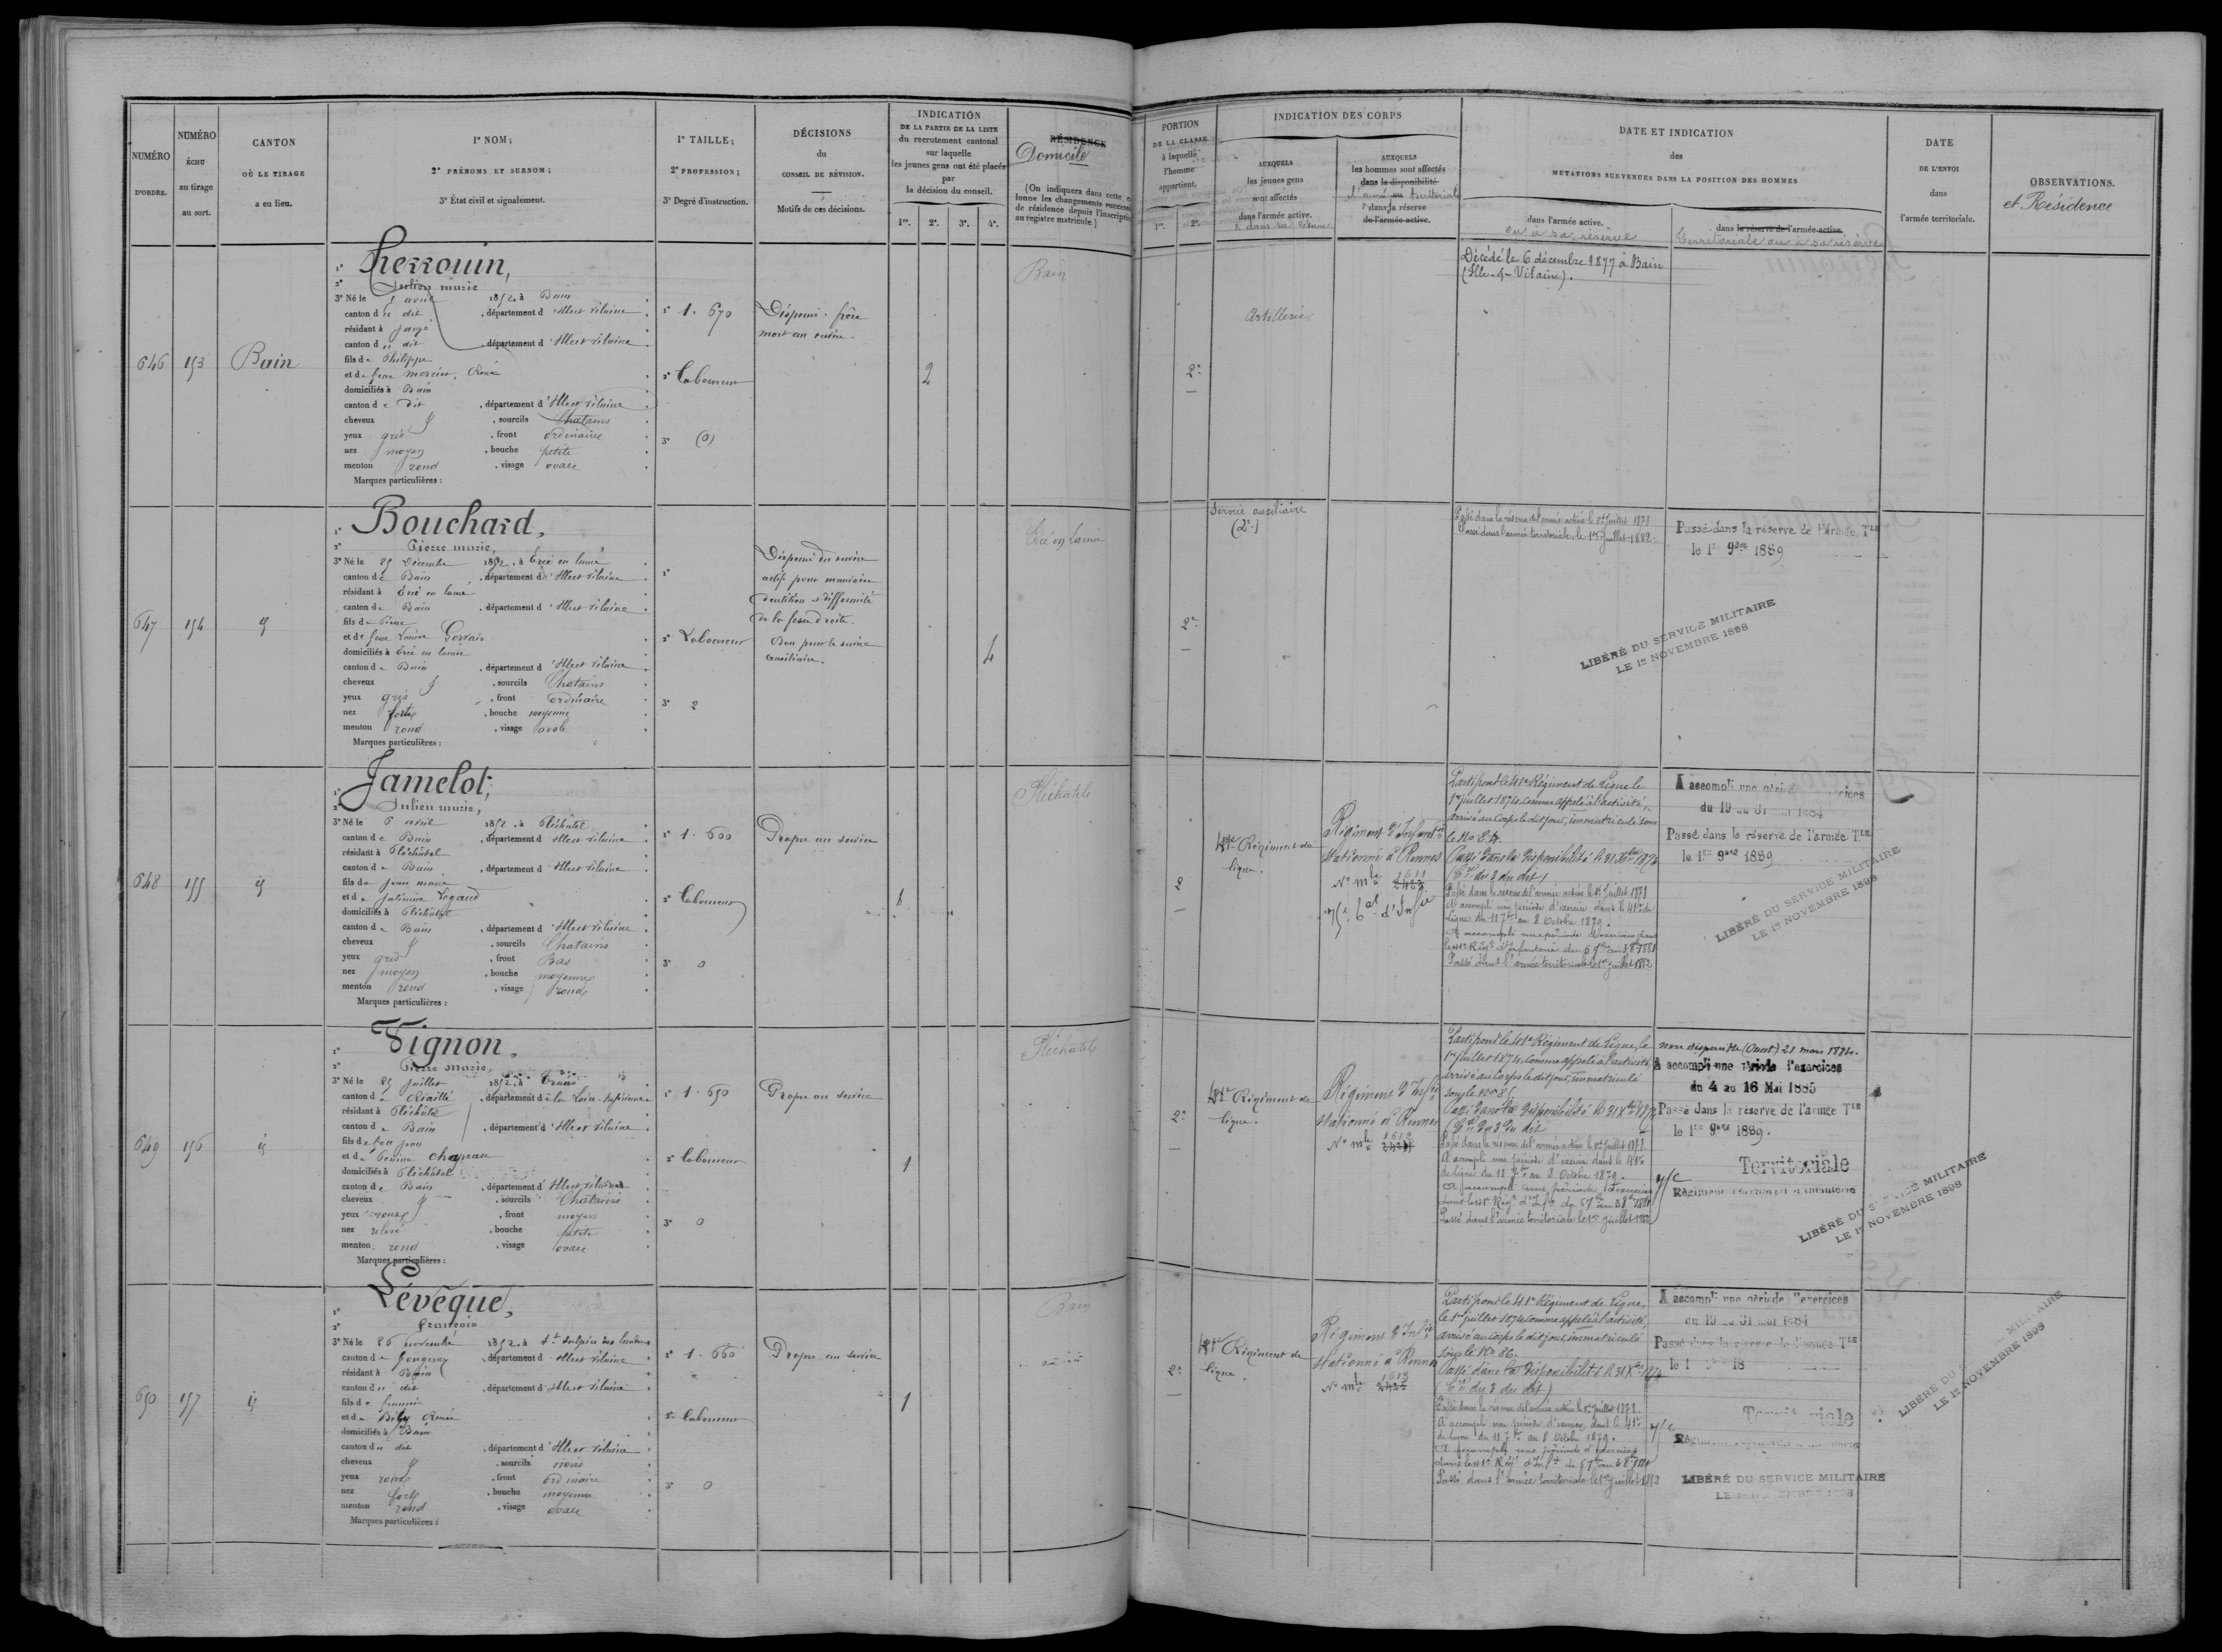 NUMÉRO
D'ORDRE.
NUMÉRO
ÉCHU
au tirage
au sort.
CANTON
OÙ LE TIRAGE
a eu lieu.
1° NOM;
2° PRÉNOMS ET SURNOM;
3° État civil et signalement.
1° TAILLE;
2° PROFESSION;
3° Degré d'instruction.
DÉCISIONS
du
CONSEIL DE RÉVISION.
Motifs de ces décisions.
INDICATION
DE LA PARTIE DE LA LISTE
du recrutement cantonal
sur laquelle
les jeunes gens ont été placés
par
la décision du conseil.
1re. 2e. 3e. 4e.
RÉSIDENCE
Domicile
(On indiquera dans cette
lonne les changements
de résidence depuis l'inscription
au registre matricule.)
PORTION
DE LA CLASSE
à laquelle
l'homme
appartient.
1re. 2e.
INDICATION DES CORPS
AUXQUELS
les jeunes gens
sont affectés
dans l'armée active.
AUXQUELS
les hommes sont affectés
dans la disponibilité
ou
dans la réserve
de l'armée active.
DATE ET INDICATION
des
MUTATIONS SURVENUES DANS LA POSITION DES HOMMES
dans l'armée active.
ou à sa réserve
dans la réserve de l'armée active.
territoriale ou à sa réserve
DATE
DE L'ENVOI
dans
l'armée territoriale.
OBSERVATIONS.
et Résidence
646 153 Bain
1° Herrouin,
2° Julien marie
3° Né le 5 avril 1852. à Bain
canton du dit, département d'Ille et Vilaine
résidant à
canton du dit, département d'Ille et Vilaine
fils de Philippe
et de feue
domiciliés à Bain
canton de dit, département d'Ille et Vilaine
cheveux, sourcils Chatains
yeux gris, front ordinaire
nez moyen, bouche petite
menton rond, visage ovale
Marques particulières :
1° 1. 670
2° Laboureur
3° (0)
Dispensé. frère
mort au service.
2
Bain
2e
Artillerie
Décédé le 6 décembre 1877 à Bain
(Ille-&-Vilaine).
647 154 id
1° Bouchard,
2° Pierre marie,
3° Né le 25 Décembre 1852. à Ercé en lamée
canton de Bain, département d'Ille et Vilaine
résidant à Ercé en lamée
canton de Bain, département d'Ille et Vilaine
fils de Pierre
et de feue Louise Gervais
domiciliés à Ercé en lamée
canton de Bain, département d'Ille et Vilaine
cheveux, sourcils Chatains
yeux gris, front ordinaire
nez fort, bouche moyenne
menton rond, visage ovale
Marques particulières :
1°
2° Laboureur
3° 2
Dispensé du service
actif pour mauvaise
dentition et difformité
de la fesse droite.
Bon pour le service
auxiliaire.
4
Ercé en lamée
2e
Service auxiliaire
(2e)
Passé dans la réserve de l'armée active le 1er juillet 1878
Passé dans l'armée territoriale, le 1er juillet 1882.
Passé dans la réserve de l'Armée Tle
le 1er 9bre 1889
LIBÉRÉ DU SERVICE MILITAIRE
LE 1er NOVEMBRE 1898
648 155 id
1° Jamelot,
2° Julien marie,
3° Né le 6 avril 1852. à Pléchâtel
canton de Bain, département d'Ille et Vilaine
résidant à Pléchâtel
canton de Bain, département d'Ille et Vilaine
fils de Jean marie
et de Julienne
domiciliés à Pléchâtel
canton de Bain, département d'Ille et Vilaine
cheveux, sourcils Chatains
yeux gris, front Bas
nez moyen, bouche moyenne
menton rond, visage rond
Marques particulières :
1° 1. 600
2° Laboureur
3° 0
Propre au service
1
Pléchatel
2
41e Régiment de
ligne.
Régiment d'Infanterie
stationné à Rennes
No mle 1611
2423
Parti pour le 41e Régiment de Ligne le
1er juillet 1874, comme appelé à l'activité,
arrivé au corps le dit jour, immatriculé sous
le No 84.
Passé dans la disponibilité le 31 Xbre 1874
(Con du 3 du dit)
Passé dans la réserve de l'armée active le 1er juillet 1878
A accompli une période d'exercice dans le 41e de
Ligne du 11 7bre au 8 Octobre 1879.
A accompli une période d'exercices dans
le 41e Régt d'Infanterie du 5 7bre au 3 8bre 1881
Passé dans l'armée territoriale le 1er juillet 1882
A accompli une période d'exercices
du 19 au 31 mai 1884
Passé dans la réserve de l'armée Tle
le 1er 9bre 1889
LIBÉRÉ DU SERVICE MILITAIRE
LE 1er NOVEMBRE 1898
649 156 id
1° Vignon,
2° Pierre marie,
3° Né le 25 juillet 1852. à
canton de Riaillé, département de la Loire-Inférieure
résidant à Pléchâtel
canton de Bain, département d'Ille et Vilaine
fils de feu Jean
et de Perrine Chapeau
domiciliés à Pléchâtel
canton de Bain, département d'Ille et Vilaine
cheveux, sourcils Chatains
yeux, front moyen
nez relevé, bouche petite
menton rond, visage ovale
Marques particulières :
1° 1. 650
2° Laboureur
3° 0
Propre au service
1
Pléchatel
2e
41e Régiment de
ligne.
Régiment d'Infie
stationné à Rennes
No mle 1612
2424
Parti pour le 41e Régiment de Ligne, le
1er juillet 1874, comme appelé à l'activité
arrivé au corps le dit jour, immatriculé
sous le No 85.
Passé dans la disponibilité le 31 Xbre 1874
(Con du 3 du dit
Passé dans la réserve de l'armée active le 1er juillet 1878.
A accompli une période d'exercice dans le 41e
de ligne du 11 7bre au 8 Octobre 1879.
A accompli une période d'exercices
dans le 41e Régt d'Infie du 5 7bre au 3 8bre 1881
Passé dans l'armée territoriale le 1er juillet 1882
non disponible (Ouest) 21 mars 1884.
A accompli une période d'exercices
du 4 au 16 Mai 1885
Passé dans la réserve de l'armée Tle
le 1er 9bre 1889.
Territoriale
Régiment territorial d'infanterie
LIBÉRÉ DU SERVICE MILITAIRE
LE 1er NOVEMBRE 1898
650 157 id
1° Lévèque,
2° François
3° Né le 26 novembre 1852. à St Sulpice des landes
canton de Fougeray, département d'Ille et Vilaine
résidant à Bain
canton du dit, département d'Ille et Vilaine
fils de François
et de Bily Renée
domiciliés à Bain
canton du dit, département d'Ille et Vilaine
cheveux, sourcils noirs
yeux roux, front ordinaire
nez fort, bouche moyenne
menton rond, visage ovale
Marques particulières :
1° 1. 660
2° Laboureur
3° 0
Propre au service
1
Bain
2e
41e Régiment de
ligne.
Régiment d'Infie
stationné à Rennes
No mle 1613
2425
Parti pour le 41e Régiment de Ligne,
le 1er juillet 1874, comme appelé à l'activité,
arrivé au corps le dit jour, immatriculé
sous le No 86.
Passé dans la disponibilité le 31 Xbre 1874
(Con du 3 du dit)
Passé dans la réserve de l'armée active le 1er juillet 1878
A accompli une période d'exercice dans le 41e
de ligne du 11 7bre au 8 Octobre 1879.
A accompli une période d'exercices
dans le 41e Régt d'Infie du 5 7bre au 3 8bre 1881
Passé dans l'armée territoriale le 1er juillet 1882
A accompli une période d'exercices
du 19 au 31 mai 1884
Passé dans la réserve de l'armée Tle
Territoriale
LIBÉRÉ DU SERVICE MILITAIRE
LIBÉRÉ DU MILITAIRE
LE 1er NOVEMBRE 1898